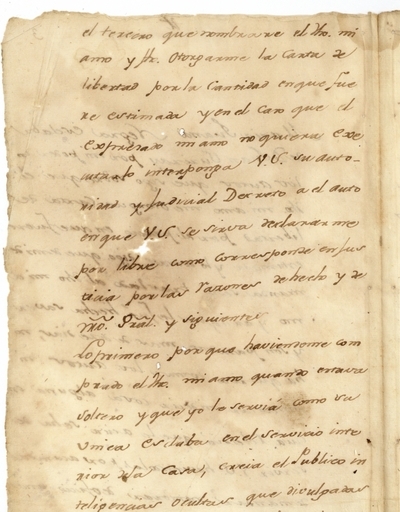 el tercero que nombrare el dho. mi
amo y Sr. Otorgarme la Carta de
libertad por la Cantidad en que fue
re estimada y en el caso que el
Expresado mi amo no quiera exe
cutarlo interponga V.S. su auto-
ridad y Judicial Decreto a el auto
en que V.S. se sirva declararme
por libre como corresponde en Jus
ticia por las razones de hecho y de
Dro. Gral. y siguientes
Lo primero porque haviendome com
prado el dho. mi amo quando estava
soltero y que yo le servia como su
unica Esclaba en el servicio inte
rior de la Casa, creia el Publico in
teligencias ocultas que divulgadas